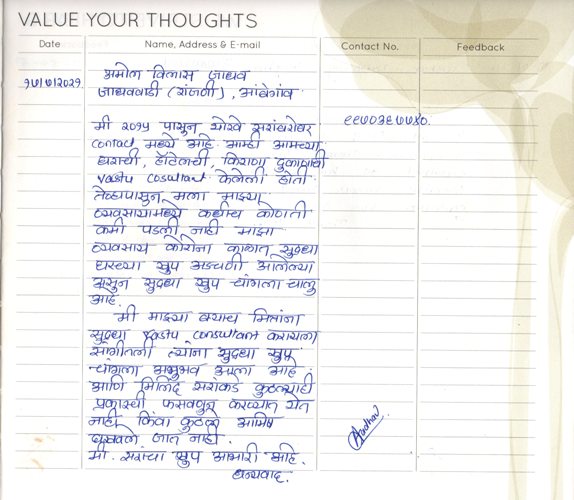 VALUE YOUR THOUGHTS
Date Name, Address & E-mail Contact No. Feedback
अमोल विलास जाधव
जाधववाडी (रांजणी), आंबेगांव
मी २०१५ पासुन मोरवे सरांबरोबर
contact मध्ये आहे आम्ही आमच्या
घराची, हॉटेलची, किराणा दुकानाची
vastu cosultant केलेली होती
तेव्हापासुन मला माझ्या
व्यवसायामध्ये कधीच कोणती
कमी पडली नाही माझा
व्यवसाय कोरोना काळात सुद्धा
घरच्या खुप अडचणी आलेल्या
असुन सुद्धा खुप चांगला चालु
आहे.
मी माझ्या बऱ्याच मित्रांना
सुद्धा vastu consultant करायला
सांगीतली त्यांना सुद्धा खुप
चांगला अनुभव आला आहे.
आणि मिलिंद सरांकडे कुठल्याही
प्रकारची फसवणुन करण्यात येत
नाही किंवा कुठले आमिष
दाखवले जात नाही.
मी. सरांचा खुप आभारी आहे.
धन्यवाद.
Jadhav